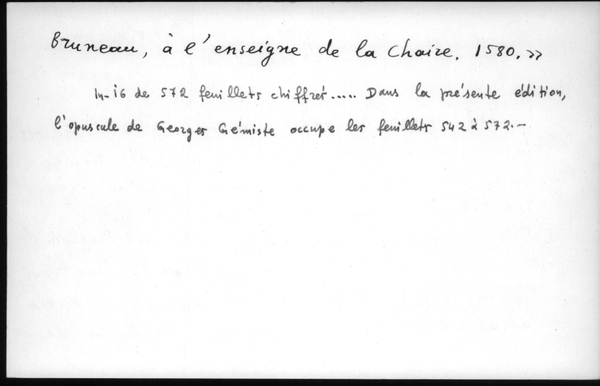 Bruneau, à l'enseigne de la Chaire. 1580. »
In-16 de 572 feuillets chiffrés..... Dans la présente édition,
l'opuscule de Georges Gémiste occupe les feuillets 542 à 572.—